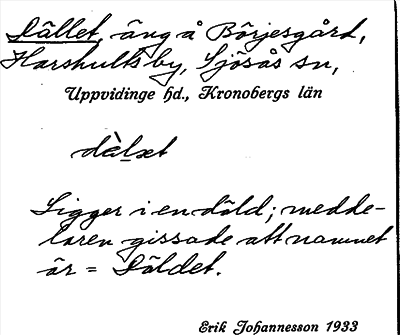 Dället, äng å Börjesgård,
Harshults by, Sjösås sn,
Uppvidinge hd., Kronobergs län
dàlxt
Ligger i en däld; medde-
laren gissade att namnet
är = Däldet.
Erik Johannesson 1933